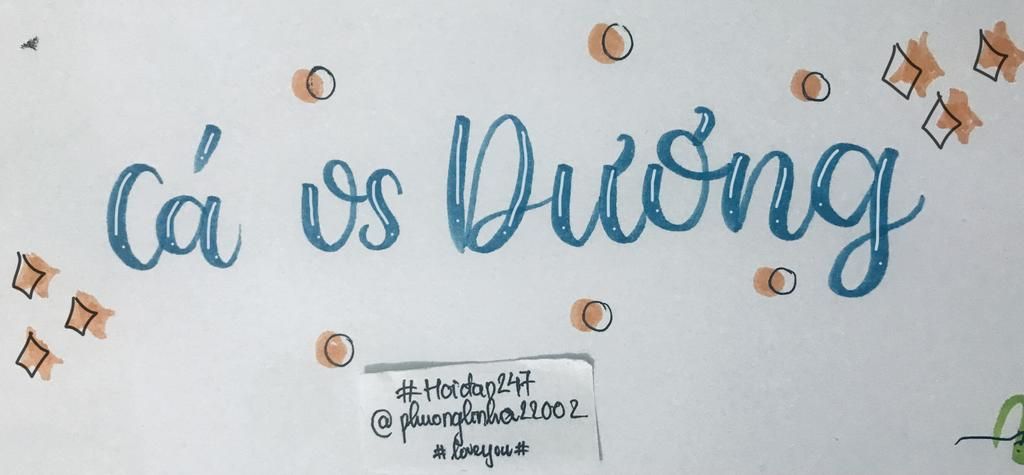 Cá vs Dương
#Hoidap247
@phuonglinha22002
#loveyou#